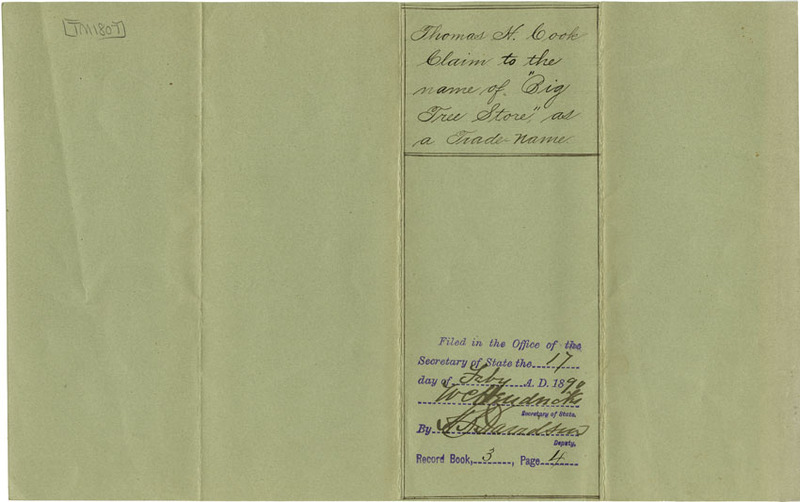 [TM1807]
Thomas H. Cook
Claim to the
name of "Big
Tree Store", as
a Trade-name.
Filed in the Office of the
Secretary of State the 17
day of Feby A. D. 1890
W C Hendricks
Secretary of State.
By Davidson
Deputy.
Record Book, 3, Page 4